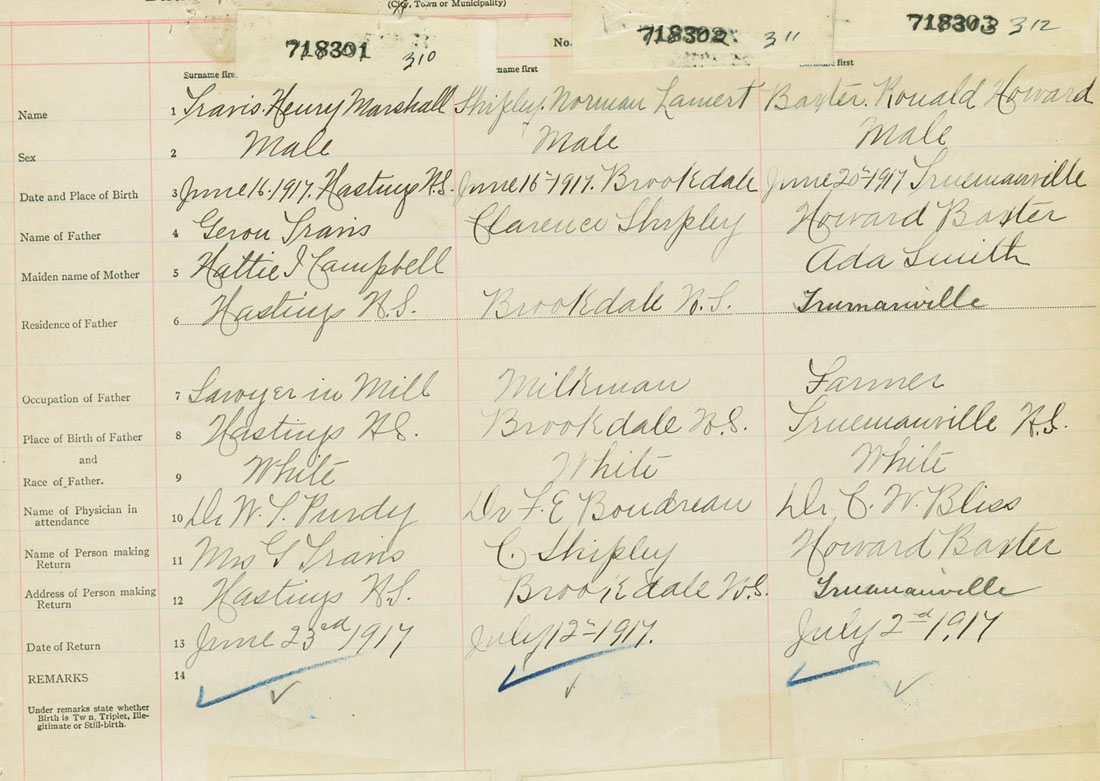 (City, Town or Municipality)
718301 310 No. 718302 311 718303 312
Surname first Surname first Surname first
Name 1 Travis. Henry Marshall Shipley. Norman Lamert Baxter. Ronald Howard
Sex 2 Male Male Male
Date and Place of Birth 3 June 16. 1917. Hastings N.S. June 16- 1917. Brookdale June 20- 1917 Truemanville
Name of Father 4 Travis Clarence Shipley Howard Baxter
Maiden name of Mother 5 Hattie I Campbell Ada Smith
Residence of Father 6 Hastings N.S. Brookdale N.S. Trumanville
Occupation of Father 7 Sawyer in Mill Milkman Farmer
Place of Birth of Father 8 Hastings N.S. Brookdale N.S. Truemanville N.S.
and
Race of Father. 9 White White White
Name of Physician in attendance 10 Dr W. T. Purdy Dr F. E Boudreau Dr. C. W. Bliss
Name of Person making Return 11 Mrs G Travis C. Shipley Howard Baxter
Address of Person making Return 12 Hastings N.S. Brookdale N.S. Truemanville
Date of Return 13 June 23rd 1917 July 12- 1917. July 2nd 1917
REMARKS 14
Under remarks state whether
Birth is Twin, Triplet, Ille-
gitimate or Still-birth.